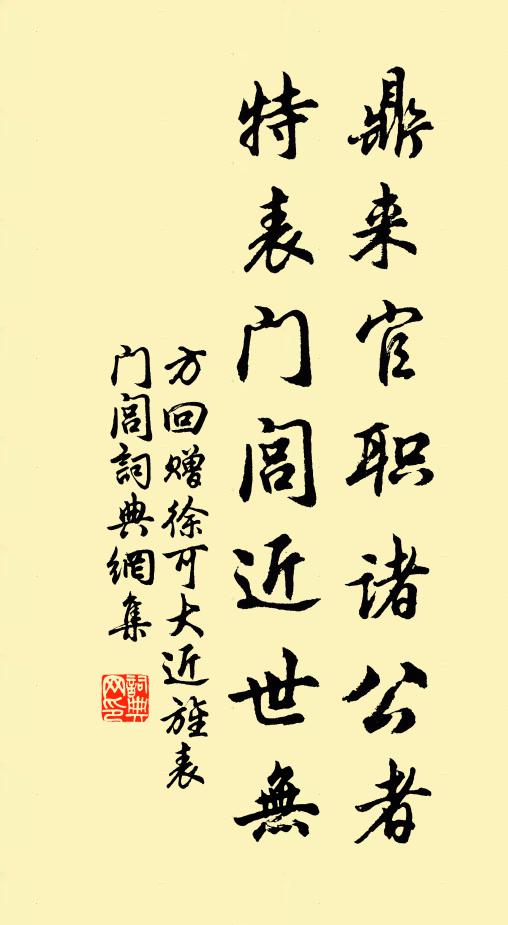 鼎来官职诸公者
特表门闾近世無
方回赠徐可大近旌表
门闾詞典網集
詞典网印